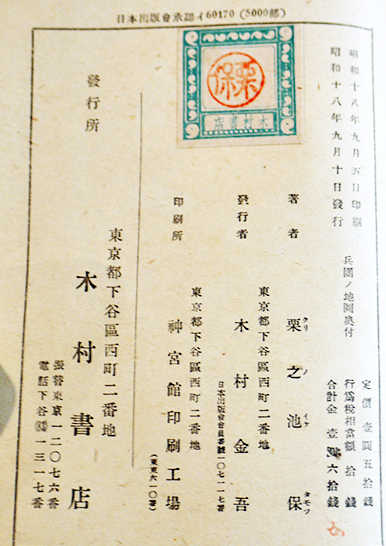 日本出版會承認イ60170(5000部)
昭和十八年九月五日印刷
昭和十八年九月十日發行
兵團ノ地圖奥付
定價 壹圓五拾錢
行爲税相當額 拾錢
合計金 壹圓六拾錢
著者 栗之池保
クリ ノ イケ タモツ
發行者
東京都下谷區西町二番地
木村金吾
日本出版會會員番號一〇七一一七番
印刷所
東京都下谷區西町二番地
神宮館印刷工場
(東東六一〇番)
栗保
木村書店
發行所
東京都下谷區西町二番地
木村書店
振替東京一二〇七六番
電話下谷 一三一七番